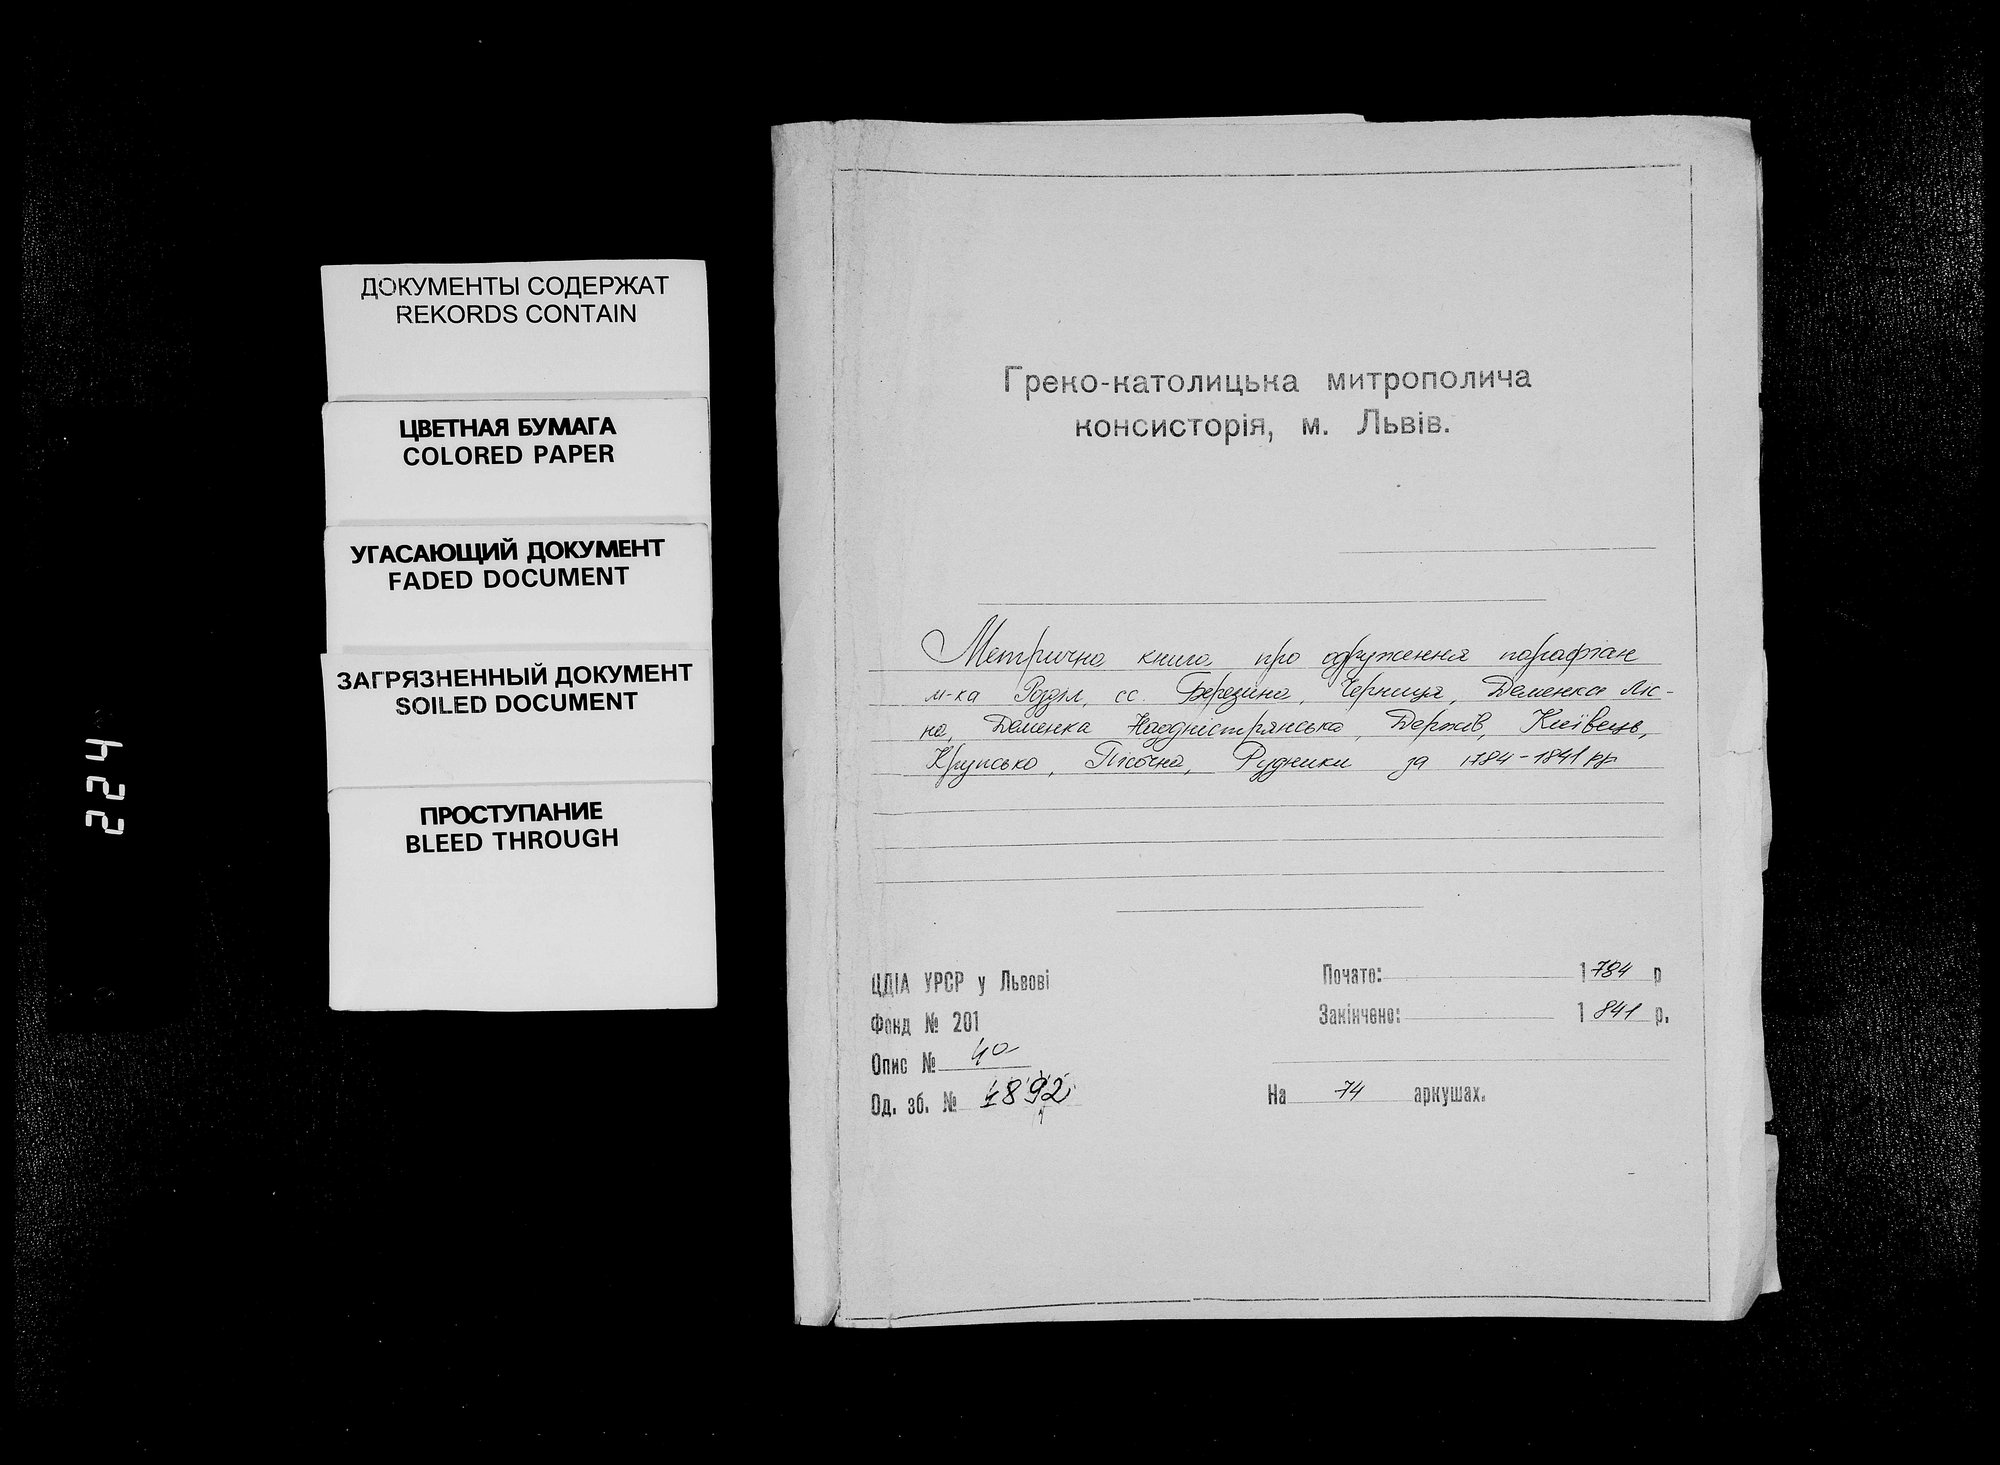 224
ДОКУМЕНТЫ СОДЕРЖАТ
REKORDS CONTAIN
ЦВЕТНАЯ БУМАГА
COLORED PAPER
УГАСАЮЩИЙ ДОКУМЕНТ
FADED DOCUMENT
ЗАГРЯЗНЕННЫЙ ДОКУМЕНТ
SOILED DOCUMENT
ПРОСТУПАНИЕ
BLEED THROUGH
Греко-католицька митрополича
консисторія, м. Львів.
Метрична книга про одруження парафіян
м-ка Розділ, сс. Березина, Черниця, Деменка Ліс-
на, Деменка Наддністрянська, Держів, Киівець,
Крупсько, Пісочна, Рудники за 1784-1841 рр.
ЦДІА УРСР у Львові
Фонд № 201
Опис № 4а
Од. зб. № 1892
Почато: 1784 р
Закінчено: 1841 р.
На 74 аркушах.